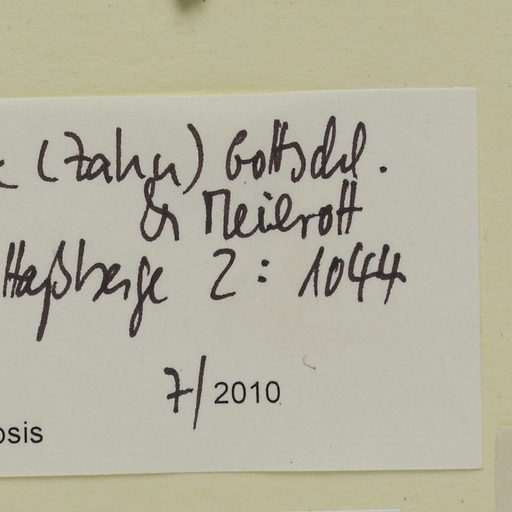 (Zahn) Gottschl.
& Meierott
Haßberge 2: 1044
7/2010
osis